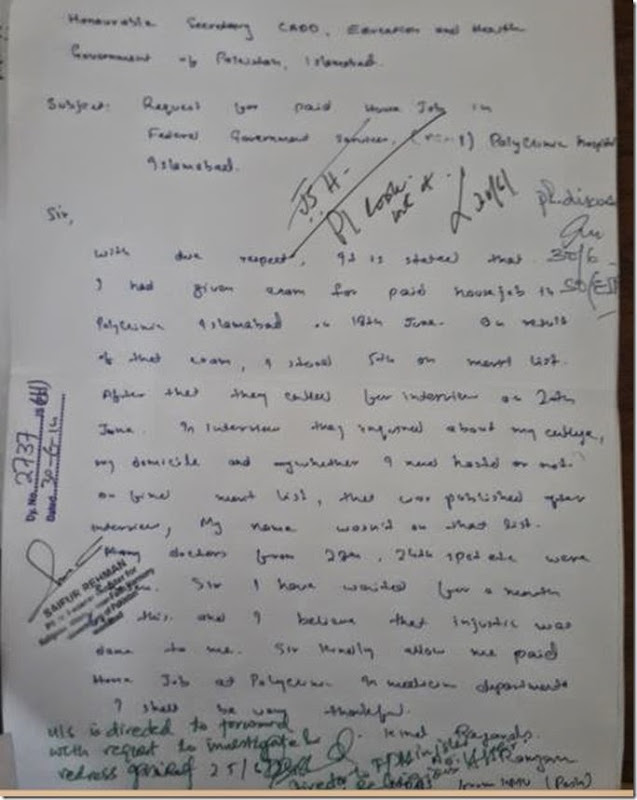 Honourable Secretary CADD, Education and Health
Government of Pakistan, Islamabad.
Subject: Request for paid House Job in
Federal Government Services, Polyclinic hospital
Islamabad.
JS H.
Pl look
20/6
Sir,
pl. discuss
30/6
With due respect, It is stated that
I had given exam for paid housejob in
Polyclinic Islamabad on 18th June. On result
of that exam, I stood 5th on merit list.
After that they called for interview on 20th
June. In Interview they inquired about my college,
my domicile and whether I need hostel or not.
on final merit list, that was published after
interview, My name wasn't on that list.
Many doctors from 22th, 24th spot etc were
Sir I have waited for a month
this and I believe that injustice was
done to me. Sir Kindly allow me paid
House Job at Polyclinic in medicine department
I shall be very thankful.
Kind Regards.
Dy. No. 2737
Dated 30-6-14
SAIFUR REHMAN
U/S is directed to forward
with request to investigate &
redress 25/6
Director to